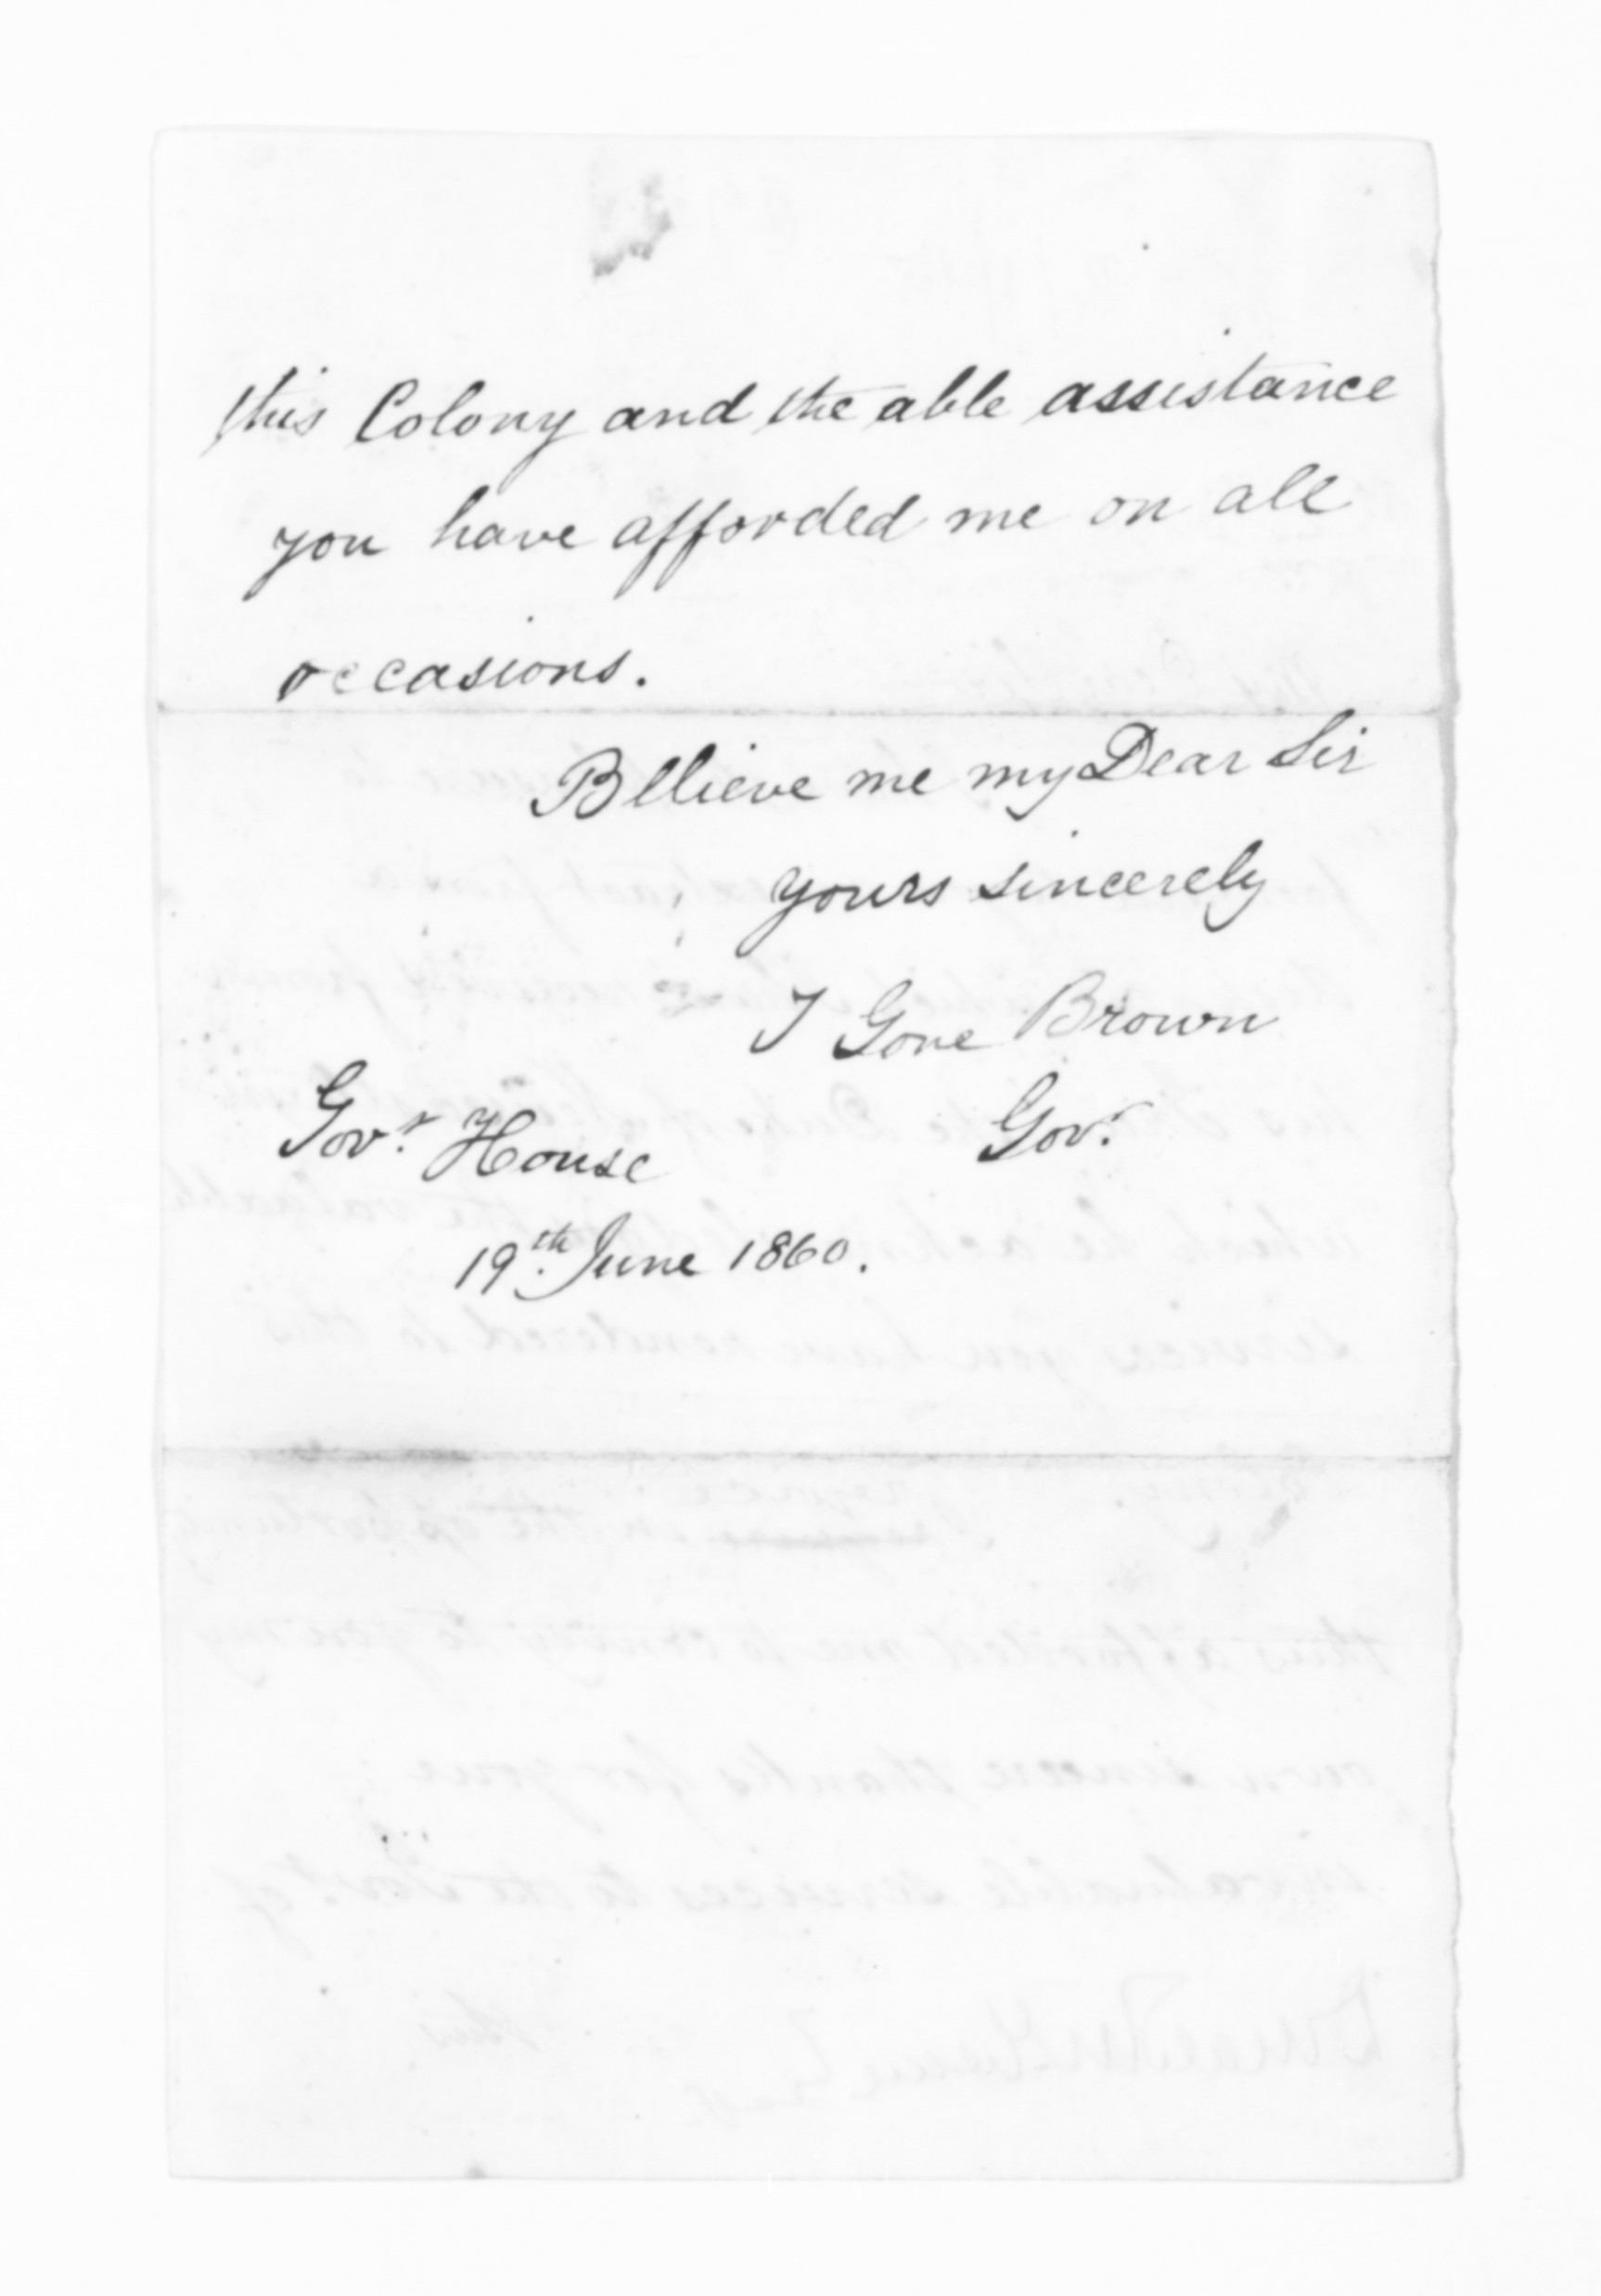 this Colony and the able assistance
you have afforded me on all
occasions.
Bllieve me my Dear Sir
yours sincerely
T Gore Brown
Govr.
Govr. House
19th. June 1860.